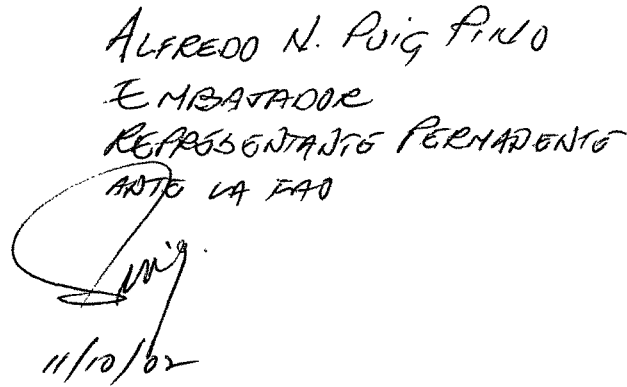 ALFREDO N. PUIG PINO
EMBAJADOR
REPRESENTANTE PERMANENTE
ANTE LA FAO
Puig.
11/10/02